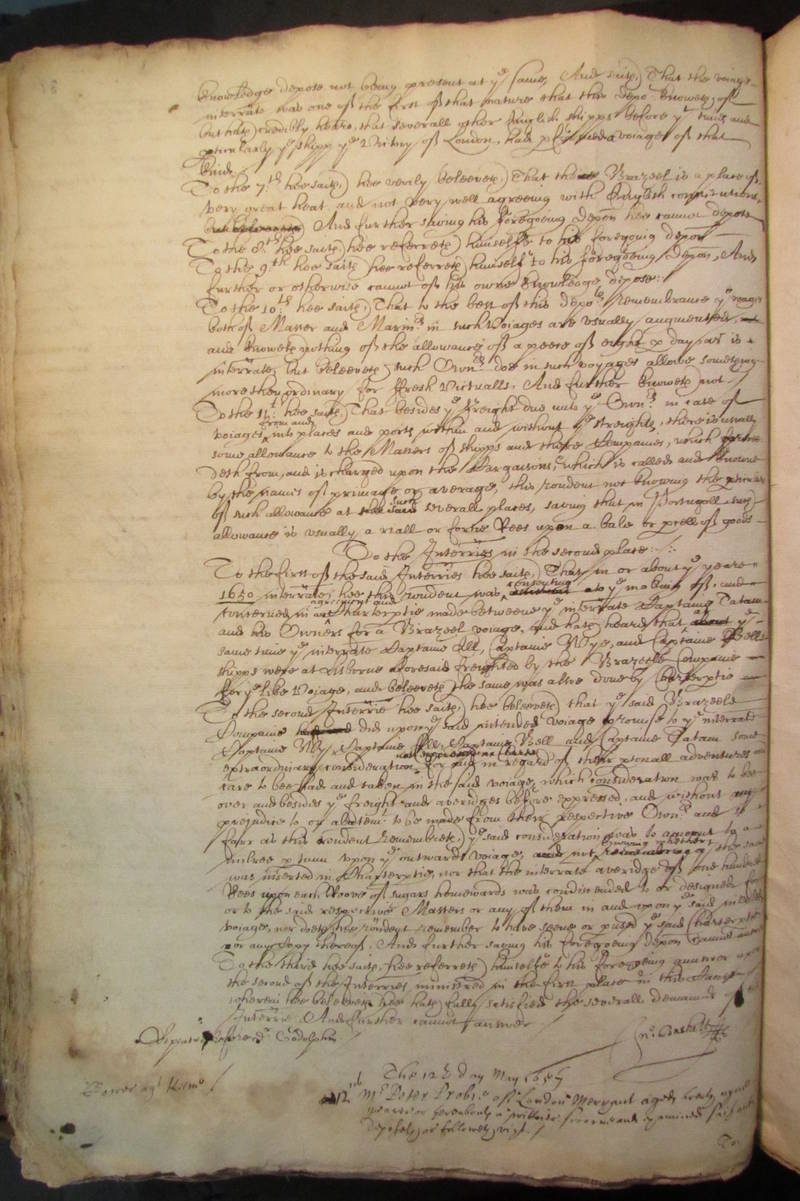 knowledge depose not being present at ye same, And saith, That the voiage
interrate was one of the first of that nature that this depont knoweth of
but hath credibly heard, that severall other English shipps before yt time and
perticularly ye shipp ye Victory of London, had performed voiages of that
kinde
To the 7th hee saith hee verily beleeveth That the Brazeel is a place of
very great heat and not very well agreeing with English constitutions
And further saving his foregoeing depon hee cannot depose
To the 8th hee saith hee referreth himselfe to his foregoing depon
To the 9th hee saith hee referreth himself to his foregoeing depon, And
further or otherwise cannot of his owne knowledge depose
To the 10th hee saith, That to the best of this deponts remembrance ye wages
both of Master and Marinrs in such voiages are usually augmented,
and knoweth nothing of the allowance of a peece of eight per day, as is
interrate, but beleeveth such Ownrs doe in such voyages allowe something
more then ordinary for fresh victualls. And further knoweth not
To the 11th hee saith That besides ye freight due unto ye Ownrs in case of
voiages from and unto places and ports within and without ye streights, there is usually
some allowance to the Masters of shipps and their Companies, which
deth from, and is charged upon the Cargasons, which is called and knowne
by the names of primage or average, this rendent not knowing the
of such allowance at such severall places, saving that in Portugall such
allowance is usually a riall or fortie Rees upon a bale or parcell of goods
To the Interries in the second place:
To the first of the said Interries hee saith, That in or about ye yeare
1650 interrate, hee this rendent was consenting to ye making of, and
interried in agreement and charterptie made betweene ye interrate Captaine Tatam
and his Owners for a Brazeel voiage, and hath heard that about ye
same time ye interrate Captaine Ell, Captaine Wye, and Captaine Bells
shipps were at Lisborne aforesaid freighted by the Brazeele Companie
for ye like voiage, and beleeveth the same was alsoe done by Charterptie
To the second Interrie hee saith, hee beleeveth that ye said Brazeele
Companie did upon ye said intended voiage promise to ye interrate
Captaine Wye, Captaine Ell, Captaine Bell and Captaine Tatam some
extraordinary consideration for and in regard of their psonall adventures and
care to bee had and taken in the said voiage, which consideration was to bee
over and besides ye freight and averidges before expressed, and without any
prejudice to or abatemt to be made from their respective Ownrs and
farr as this rendent remembreth, ye said consideration was to amount to a
milree per tunn upon ye outwards voiage, and not knowing whether ye same
was inserted in Charterptie, nor that the interrate averidge of one hundred
Rees upon each Roove of sugars homewards was condiscended to or designed for
or to the said respective Masters or any of them in and upon ye said intended
voiage, nor doeth hee rendent remember to have seene or pused ye said Charterptie
nor any Copy thereof. And further saving his foregoeing depon cannot answer
To the third hee saith, hee referreth himselfe to his foregoeing answer upon
the second of the Interries ministred in the first place in this Cause
wherein hee beleeveth hee hath fully satisfied the severall demands of
Interrie. And further cannot answer
Repeated before dr Godolphin
The 12th day May 1657
Tower agt Holmes
12th Mr Peter Probie of London Merchant aged
yeares or thereabouts a wittnes sworne and examined saith and
deposeth as followeth, vizt.
To